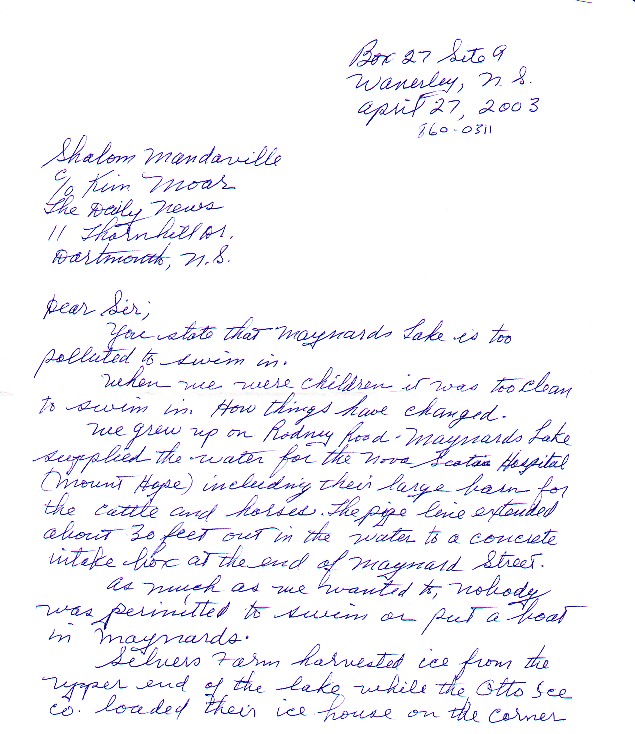 Box 27 Site 9
Waverley, N. S.
April 27, 2003
860-0311
Shalom Mandaville
c/o Kim Moar
The Daily News
11 Thornhill Dr.
Dartmouth, N.S.
Dear Sir;
You state that Maynards Lake is too
polluted to swim in.
When we were children it was too clean
to swim in. How things have changed.
We grew up on Rodney Road - Maynards Lake
supplied the water for the Nova Scotia Hospital
(Mount Hope) including their large barn for
the cattle and horses. The pipe line extended
about 30 feet out in the water to a concrete
intake box at the end of Maynard Street.
As much as we wanted to, nobody
was permitted to swim or put a boat
in Maynards.
Silvers Farm harvested ice from the
upper end of the lake while the Otto Ice
Co. loaded their ice house on the corner